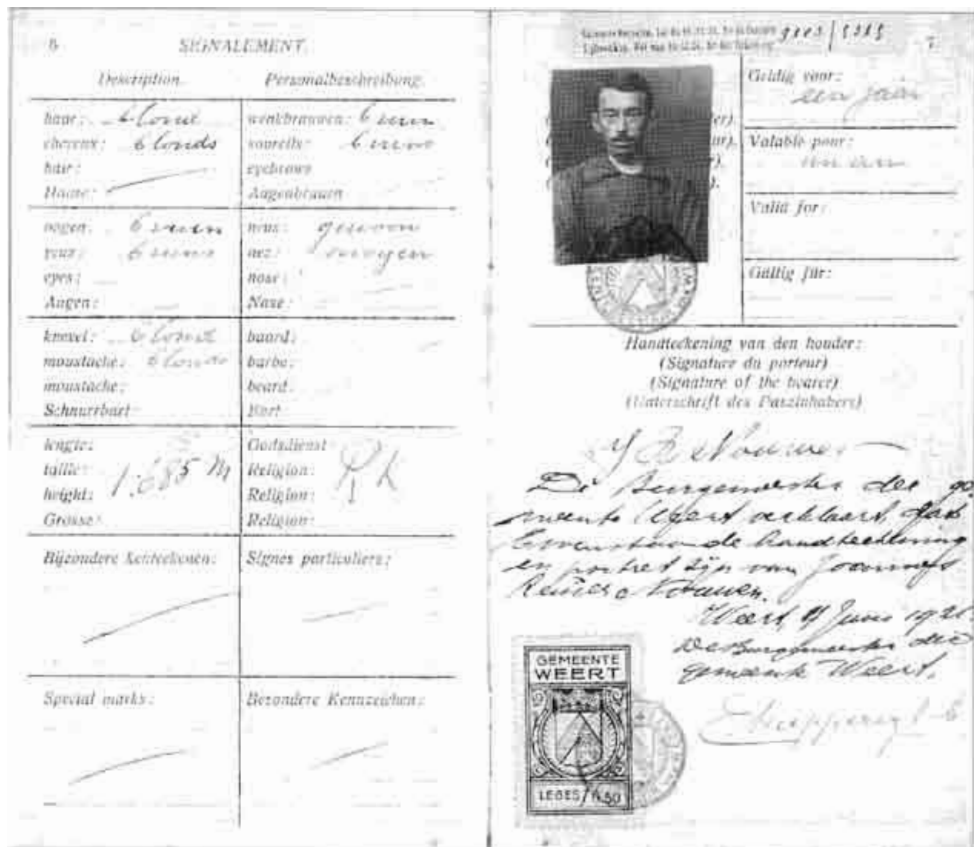 6
SIGNALEMENT.
Description.
Personalbeschreibung.
haar: blond
cheveux: blonds
hair:
Haare:
wenkbrauwen: bruin
sourcils: bruns
eyebrows
Augenbrauen
oogen: bruin
yeux: bruns
eyes:
Augen:
neus: gewoon
nez: moyen
nose:
Nase:
knevel: blond
moustache: blonde
moustache:
Schnurrbart
baard:
barbe:
beard:
Bart
lengte:
taille: 1.685 M
height:
Grösse:
Godsdienst
Religion: R. K
Religion:
Religion:
Bijzondere kenteekenen:
Signes particuliers:
Special marks:
Bezondere Kennzeichen:
7.
Geldig voor:
een jaar
Valable pour:
un an
Valid for:
Gültig für:
Handteekening van den houder:
(Signature du porteur)
(Signature of the bearer)
(Unterschrift des Paszinhabers)
De Burgemeester der ge
meente Weert verklaart, dat
bovenstaande handteekening
en portret zijn van Joannes
Reinier Nouwen.
Weert, Juni 1921
De Burgemeester der
gemeente Weert,
GEMEENTE
WEERT
LEGES f 0.50